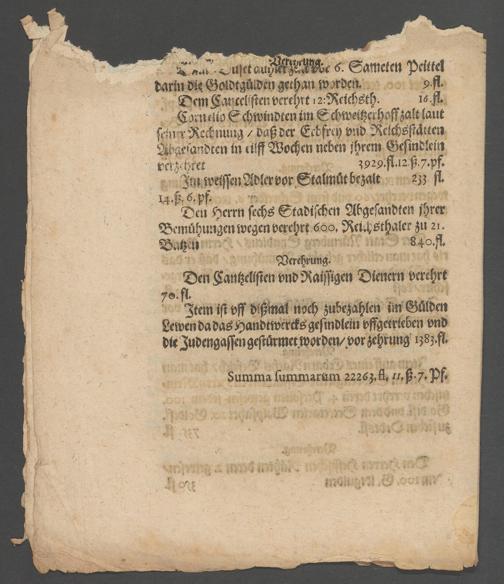 Verehrung.
6. Sameten Peütel
darin die Goldtgülden gethan worden. 9. fl.
Dem Cantzelisten verehrt 12: Reichsth. 16. fl.
Cornelio Schwindten im Schweitzerhoff zalt laut
seiner Rechnung / daß der Erbfrey vnd Reichsstätten
Abgesandten in eilff Wochen neben jhrem Gesindlein
verzehret 3929. fl. 12. ß. 7. pf.
Im weissen Adler vor Stalmüt bezalt 233 fl.
14. ß. 6. pf.
Den Herrn sechs Stadischen Abgesandten jhrer
Bemühungen wegen verehrt 600. Reichsthaler zu 21.
Batzen 840. fl.
Verehrung.
Den Cantzelisten vnd Raissigen Dienern verehrt
70. fl.
Item ist vff dißmal noch zubezahlen im Gülden
Lewen da das Handtwercks gesindlein vffgetrieben vnd
die Judengassen gestürmet worden / vor zehrung 1383. fl.
Summa summarum 22263. fl. 11. ß. 7. Pf.